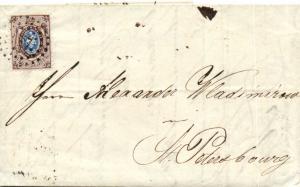 Herrn Alexander Wladimirow
St. Petersbourg